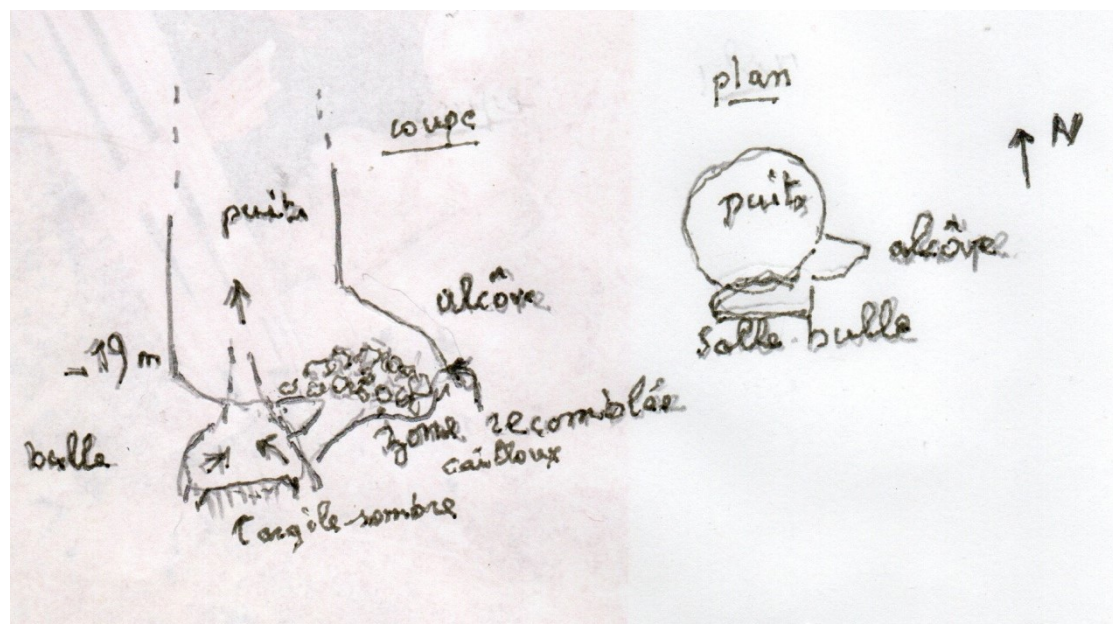 coupe
puits
alcôve
-19 m
bulle
zone recomblée
cailloux
argile sombre
plan
N
puits
alcôve
salle bulle